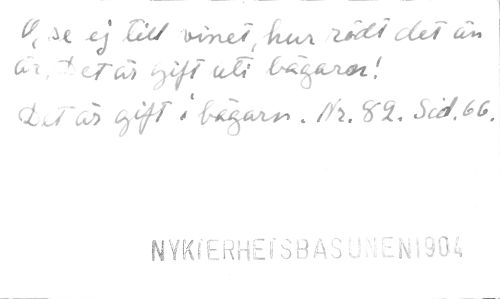 O, se ej till vinet, hur rödt det än
är. Det är gift uti bägaren!
Det är gift i bägarn. Nr. 82. Sid. 66.
NYKTERHETSBASUNEN 1904